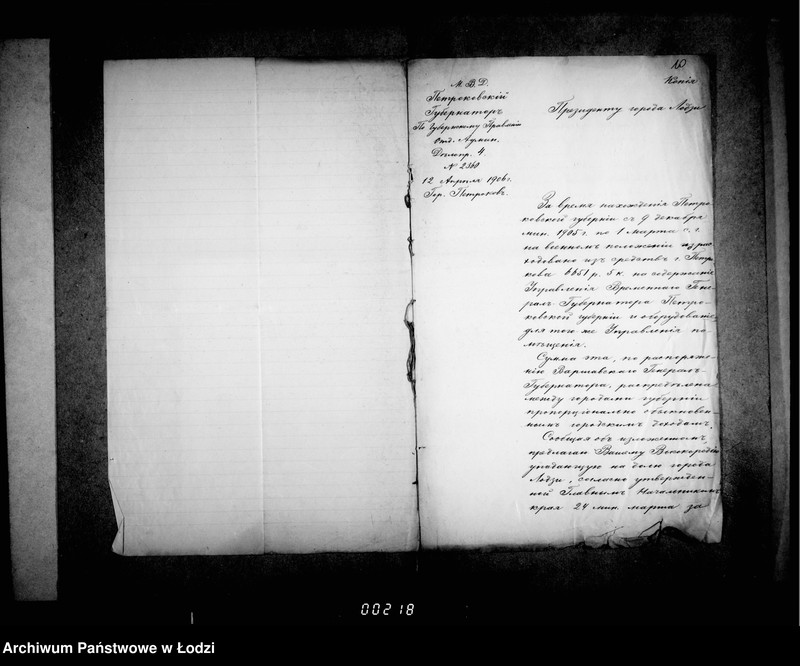 10
Копія
М. В. Д.
Петроковскій
Губернаторъ
По Губернскому Правленію
Отд. Админ.
Дѣлопр. 4.
N 2360
12 Апрѣля 1906 г.
Гор. Петроковъ.
Президенту города Лодзи
За время нахожденія Петро-
ковской губерніи съ 9 декабря
мин. 1905 г. по 1 марта с. г.
на военномъ положеніи израс
ходовано изъ средствъ г. Петро
кова 6651 р. 5 к. на содержаніе
Управленія Временнаго Гене
ралъ Губернатора Петро-
ковской губерніи и оборудованіе
для того же Управленія по
мѣщенія.
Сумма эта, по распоряже-
нію Варшавскаго Генералъ-
Губернатора, распредѣлена
между городами губерніи
пропорціонально обыкновен-
нымъ городскимъ доходамъ.
Сообщая объ изложенномъ
предлагаю Вашему Высокородію
упадающую на долю города
Лодзи, согласно утвержден-
ной Главнымъ Начальникомъ
края 24 мин. марта за
00218
Archiwum Państwowe w Łodzi